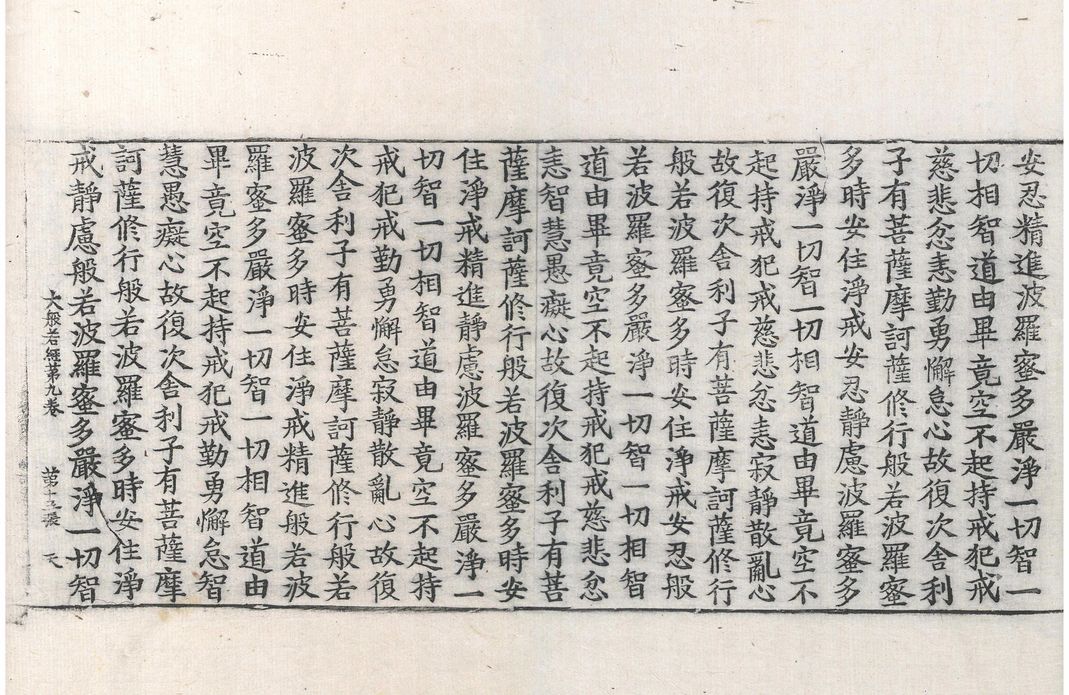 安忍精進波羅蜜多嚴淨一切智一
切相智道由畢竟空不起持戒犯戒
慈悲忿恚勤勇懈怠心故復次舍利
子有菩薩摩訶薩修行般若波羅蜜
多時安住淨戒安忍靜慮波羅蜜多
嚴淨一切智一切相智道由畢竟空不
起持戒犯戒慈悲忿恚寂靜散亂心
故復次舍利子有菩薩摩訶薩修行
般若波羅蜜多時安住淨戒安忍般
若波羅蜜多嚴淨一切智一切相智
道由畢竟空不起持戒犯戒慈悲忿
恚智慧愚癡心故復次舍利子有菩
薩摩訶薩修行般若波羅蜜多時安
住淨戒精進靜慮波羅蜜多嚴淨一
切智一切相智道由畢竟空不起持
戒犯戒勤勇懈怠寂靜散亂心故復
次舍利子有菩薩摩訶薩修行般若
波羅蜜多時安住淨戒精進般若波
羅蜜多嚴淨一切智一切相智道由
畢竟空不起持戒犯戒勤勇懈怠智
慧愚癡心故復次舍利子有菩薩摩
訶薩修行般若波羅蜜多時安住淨
戒靜慮般若波羅蜜多嚴淨一切智
大般若經第九卷 第十五張 天